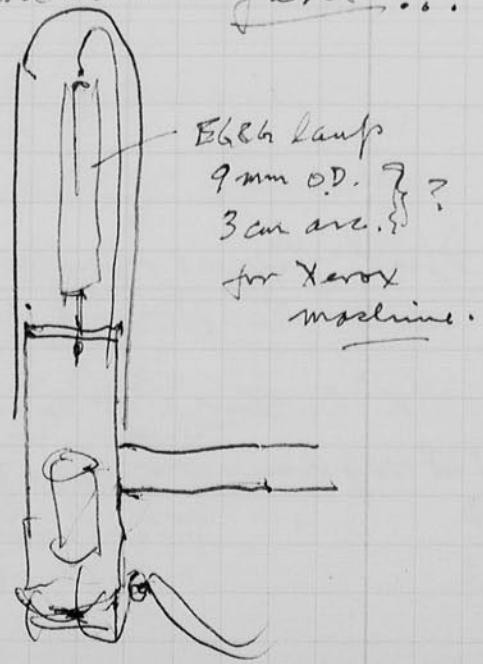 EG&G lamp
9 mm O.D. } ?
3 cm arc. }
for Xerox
machine.